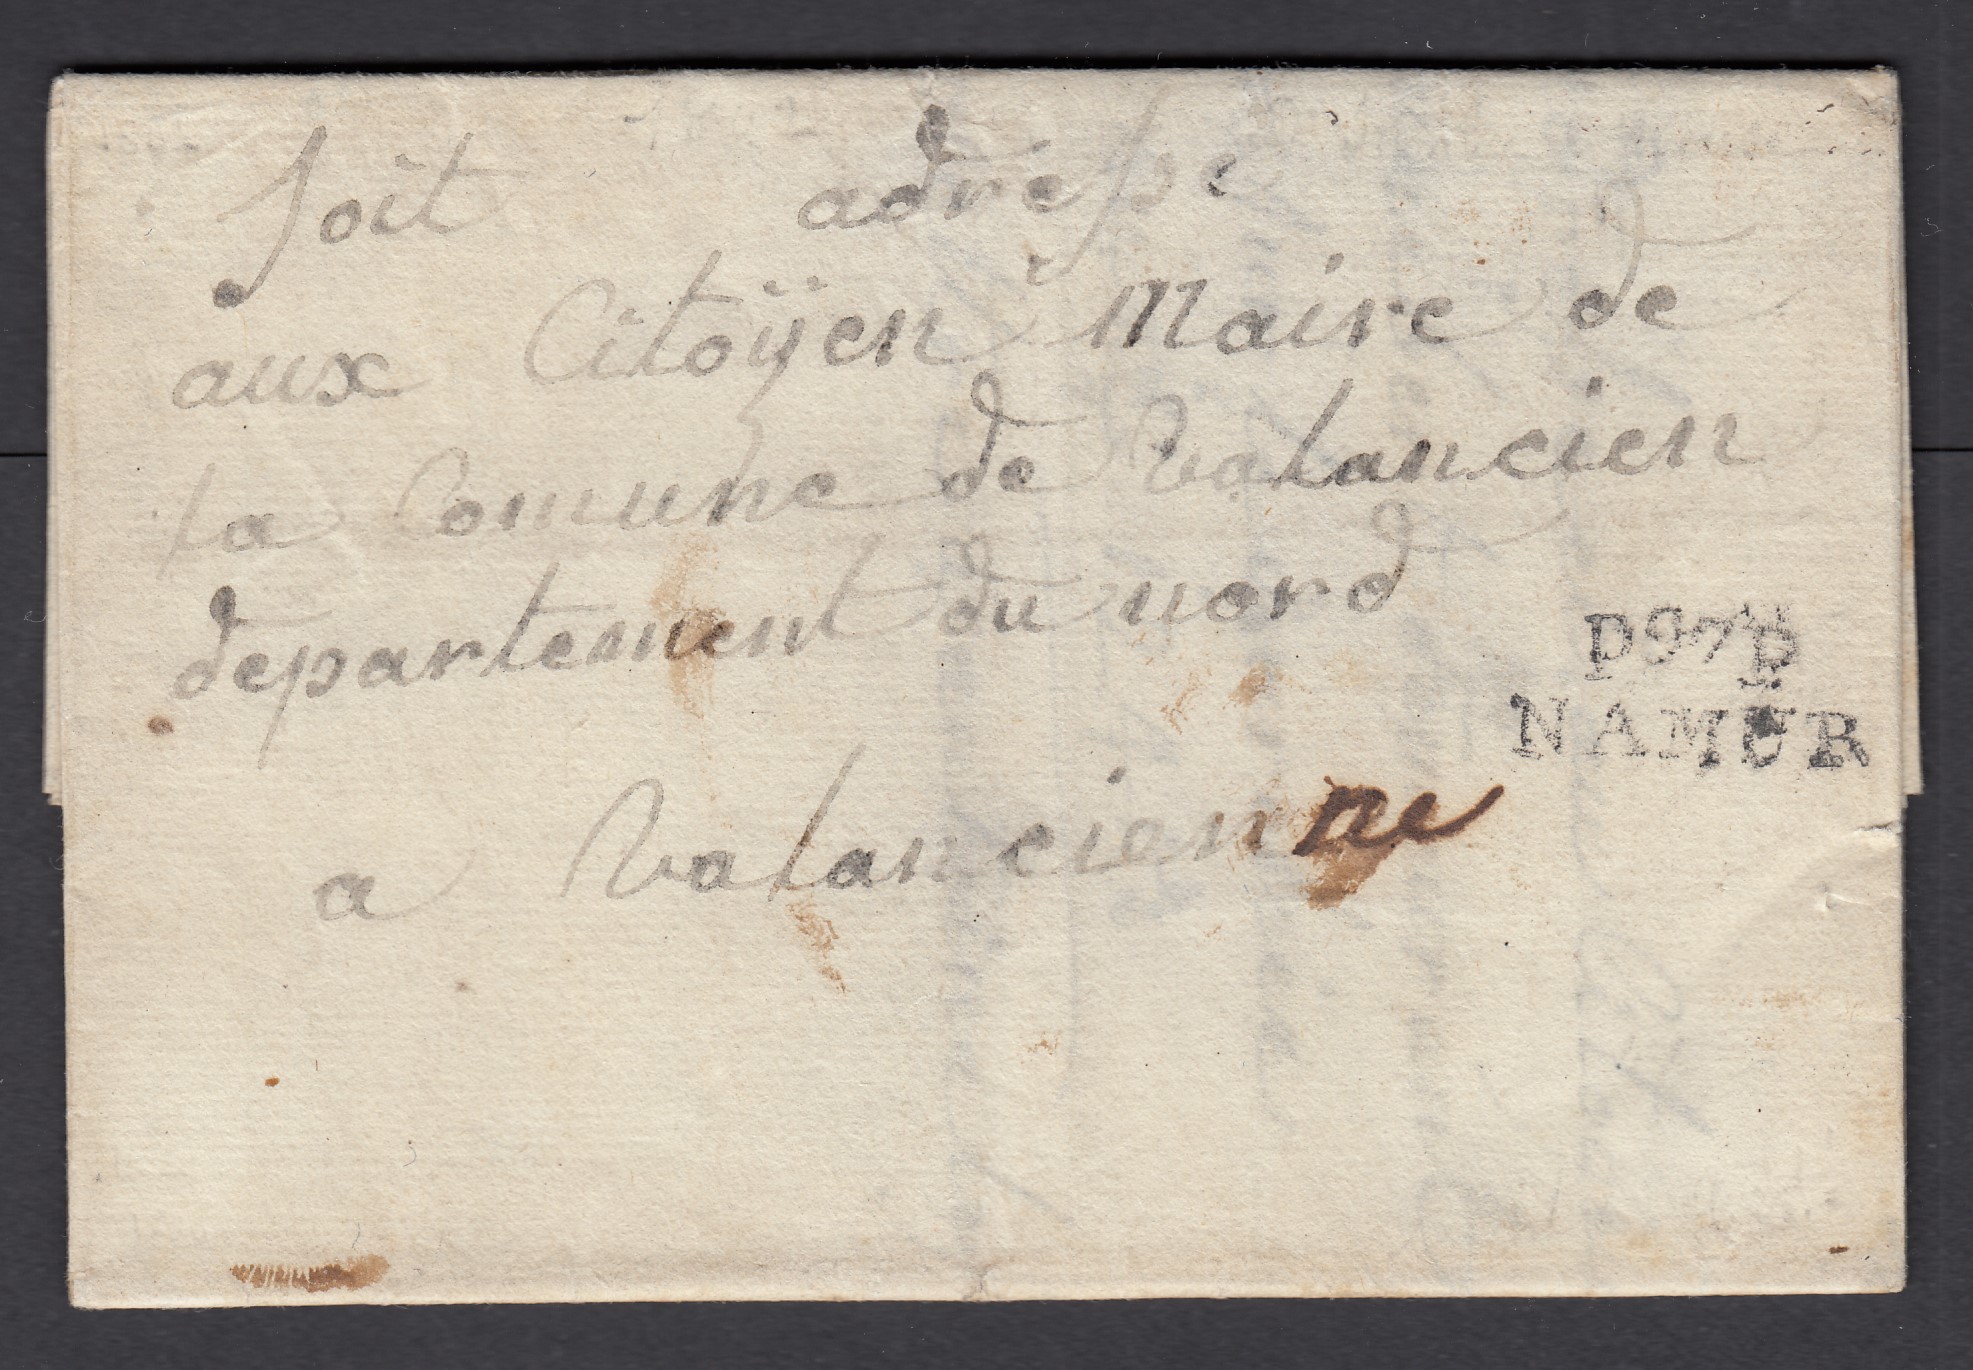 soit adresse
aux Citoÿen Maire de
la Comune de Valancien
departement du nord
P97P
NAMUR
a Valancienne